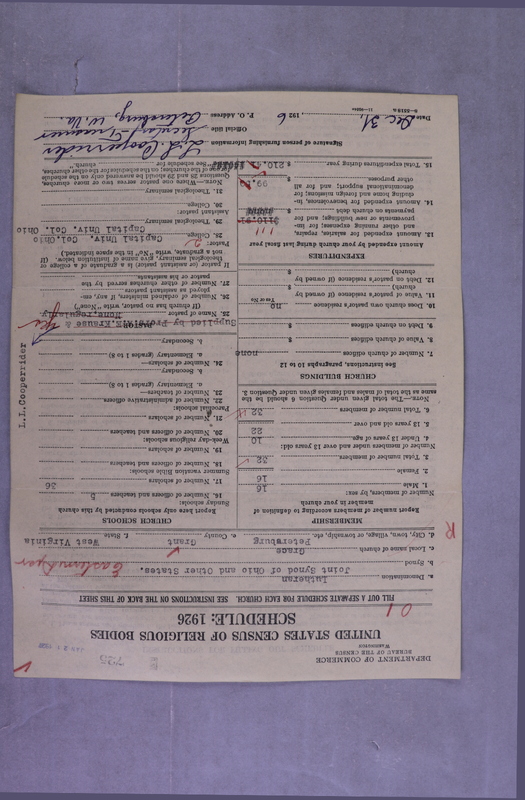 DEPARTMENT OF COMMERCE
BUREAU OF THE CENSUS
WASHINGTON
UNITED STATES CENSUS OF RELIGIOUS BODIES
SCHEDULE: 1926
FILL OUT A SEPARATE SCHEDULE FOR EACH CHURCH. SEE INSTRUCTIONS ON THE BACK OF THIS SHEET
a. Denomination Lutheran
b. Synod Joint Synod of Ohio and Other States.
c. Local name of church Grace
d. City, town, village, or township, etc. Petersburg e. County Grant f. State West Virginia
MEMBERSHIP
Report number of members according to definition of member in your church
Number of members, by sex:
1. Male 16
2. Female 16
3. Total number of members 32
Number of members under and over 13 years old:
4. Under 13 years of age 10
5. 13 years old and over 22
6. Total number of members 32
NOTE.—The total given under Question 6 should be the same as the total of males and females given under Question 3.
CHURCH BUILDINGS
See instructions, paragraphs 10 to 12
7. Number of church edifices none
8. Value of church edifices $
9. Debt on church edifices $
10. Does church own pastor's residence no
Yes or No
11. Value of pastor's residence (if owned by church) $
12. Debt on pastor's residence (if owned by church) $
EXPENDITURES
Amount expended by your church during last fiscal year
13. Amount expended for salaries, repairs, and other running expenses; for improvements or new buildings; and for payments on church debt 111
14. Amount expended for benevolence, including home and foreign missions; for denominational support; and for all other purposes 99
15. Total expenditures during year $ 210
CHURCH SCHOOLS
Report here only schools conducted by this church
Sunday schools:
16. Number of officers and teachers 5
17. Number of scholars 36
Summer vacation Bible schools:
18. Number of officers and teachers
19. Number of scholars
Week-day religious schools:
20. Number of officers and teachers
21. Number of scholars
Parochial schools:
22. Number of administrative officers
23. Number of teachers—
a. Elementary (grades 1 to 8)
b. Secondary
24. Number of scholars—
a. Elementary (grades 1 to 8)
b. Secondary
PASTOR
25. Name of pastor None, regularly
Supplied by Profs. Krause &
L.L.Cooperrider
(If church has no pastor, write "None")
26. Number of ordained ministers, if any, employed as assistant pastors
27. Number of other churches served by the pastor or his assistants
If pastor (or assistant pastor) is a graduate of a college or theological seminary, give name of institution below. (If not a graduate, write "No" in the space indicated.)
Pastor:
28. College Capital Univ. Col. Ohio
29. Theological seminary Capital Univ. Col. Ohio
Assistant pastor:
30. College
31. Theological seminary
Signature of person furnishing information L. L. Cooperrider
Official title Secretary-Treasurer
Date Dec 31, 1926 P. O. Address Petersburg, W. Va.